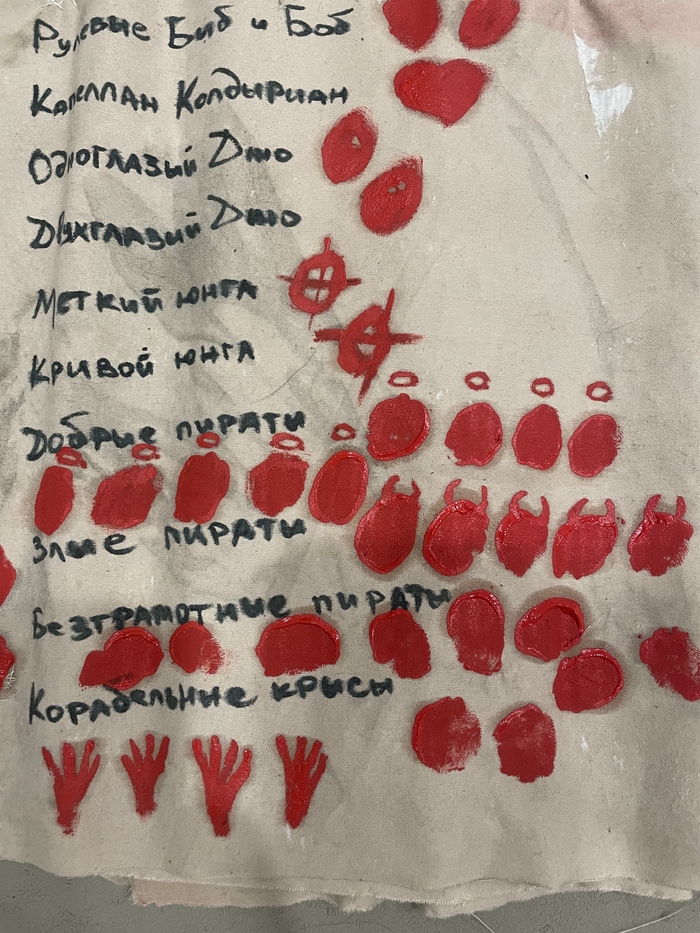 Рулевые Биб и Боб
Капеллан Колдыриан
Одноглазый Джо
Двухглазый Джо
Меткий юнга
Кривой юнга
Добрые пирати
Злые пирати
Безграмотные пирати
Корабельные крысы